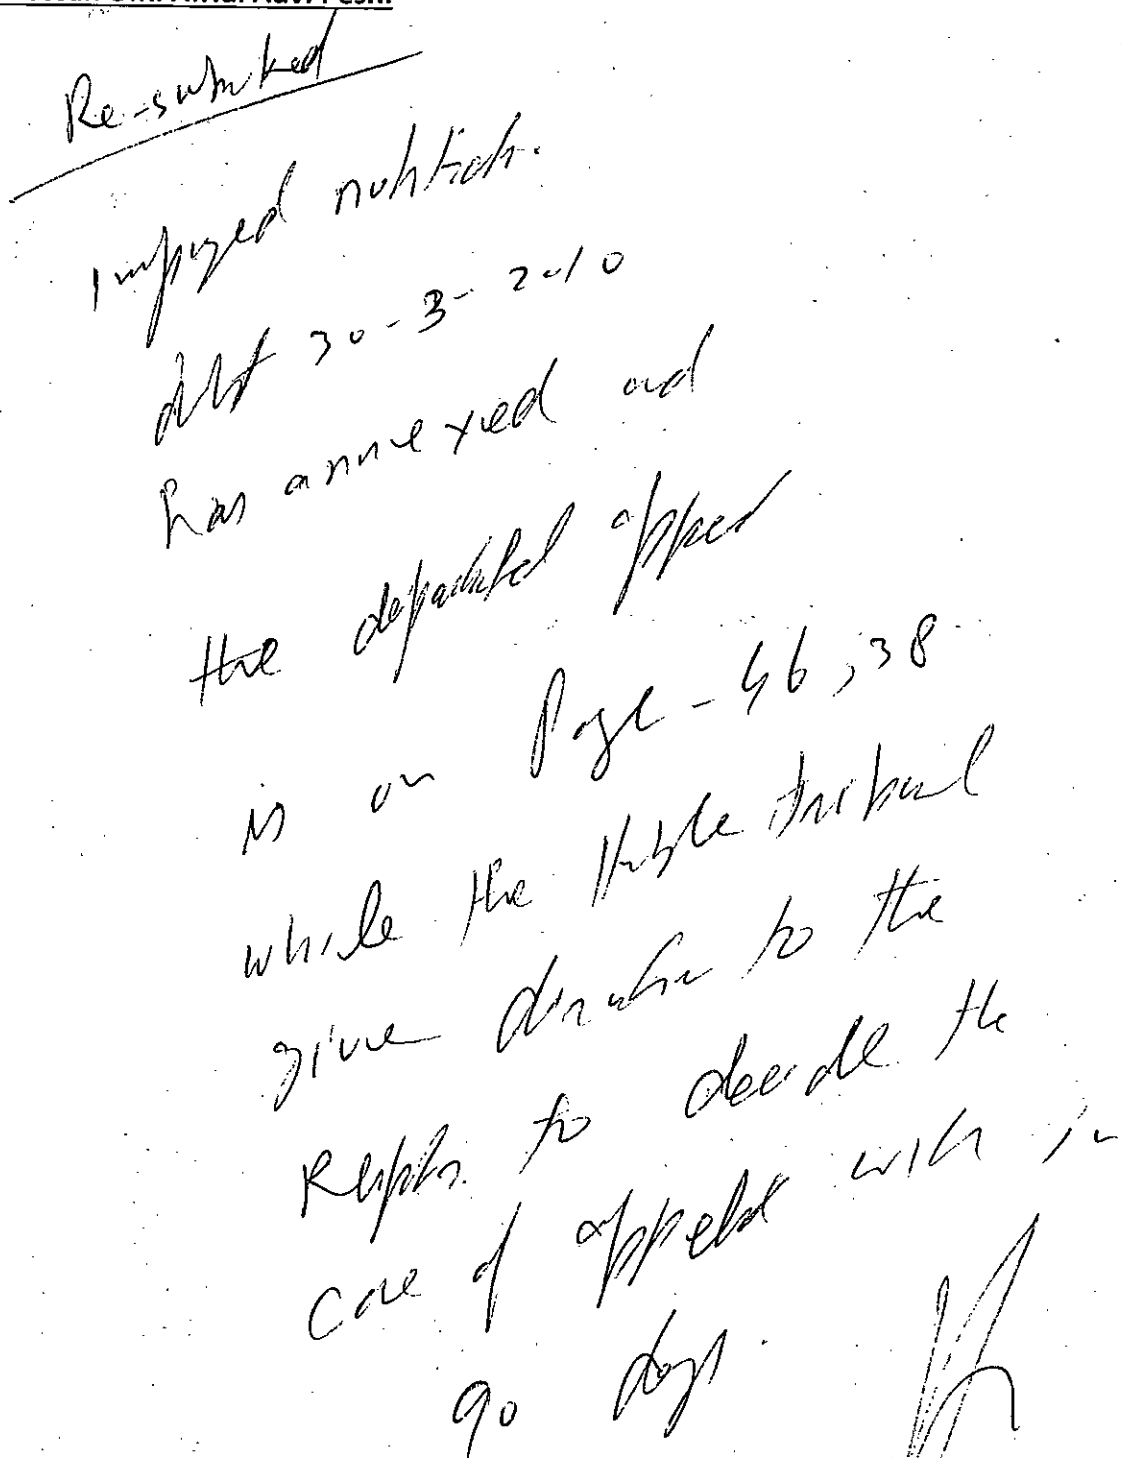 Re-submitted
Impugned notification.
dated 30-3-2010
has annexed and
the departmental appeal
is on Page - 46, 38
while the Hon'ble tribunal
given direction to the
Respdts. to decide the
case of appellant with in
90 days.